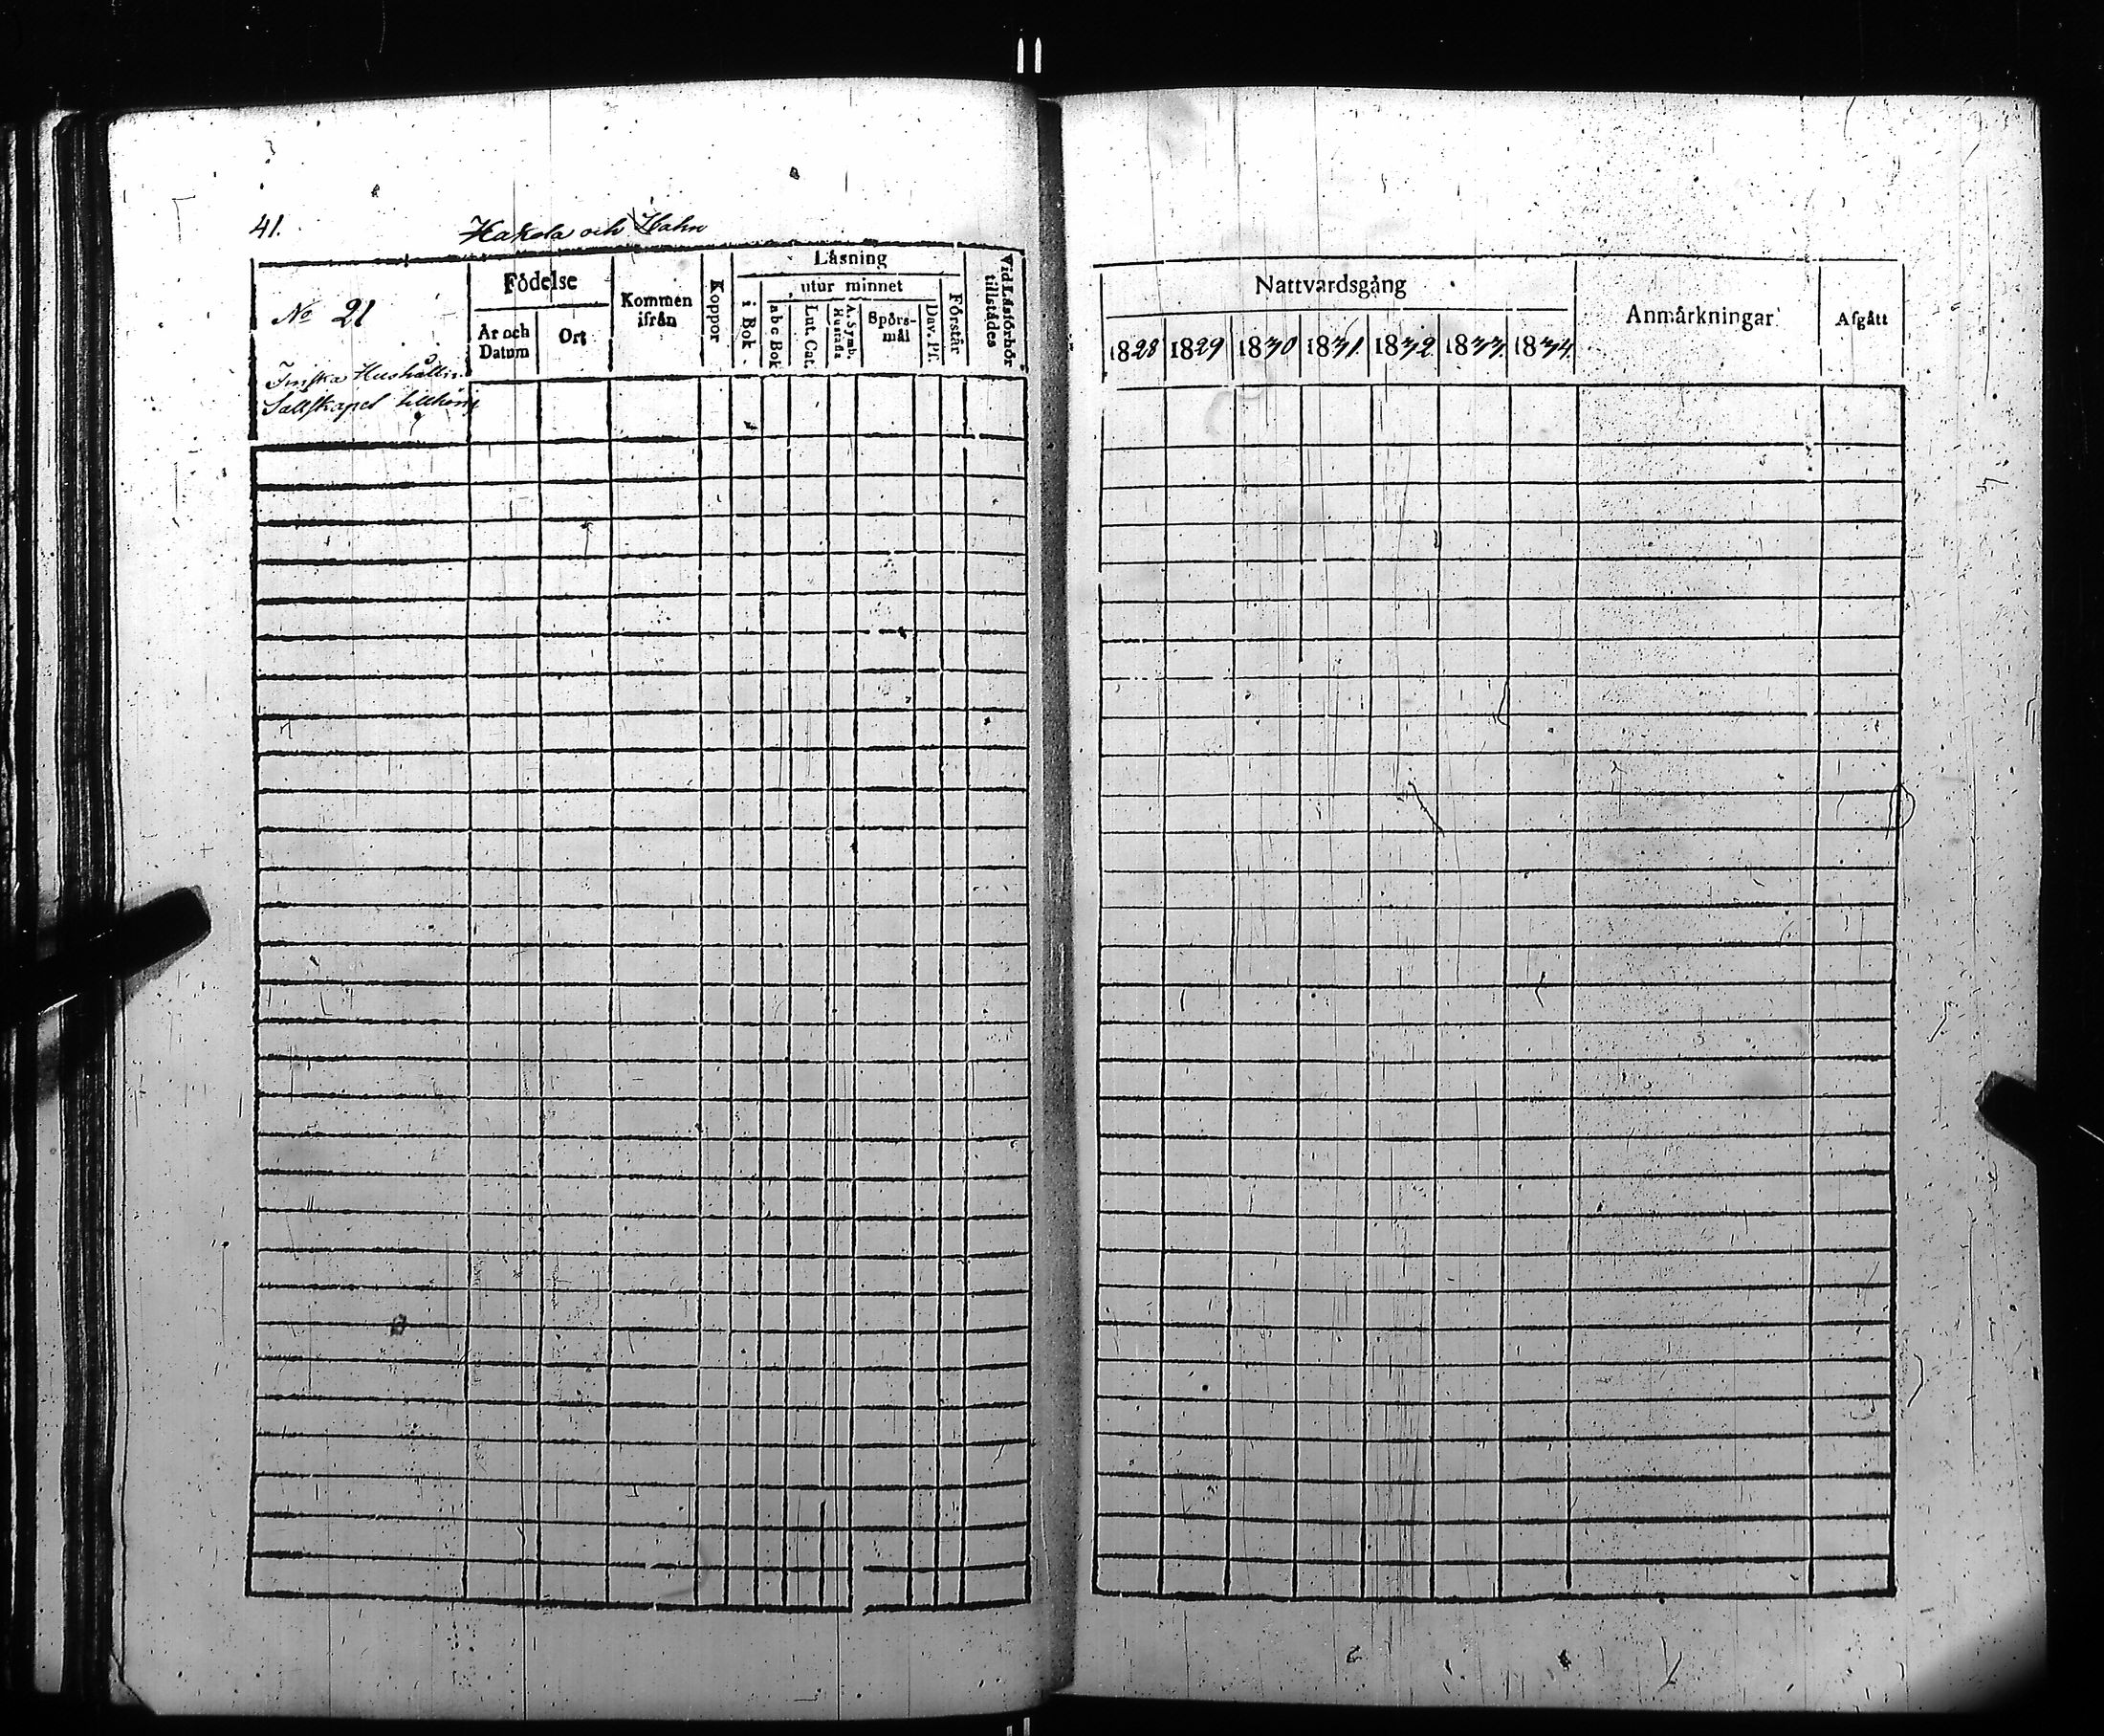 41.
Hakola och Hahn
No 21
Finska Hushålln.
Sällskapet tillhörig
Födelse
År och
Datum
Ort
Kommen
ifrån
Koppor
Läsning
utur minnet
i Bok.
abc Bok
Lut. Cat.
A. Symb.
Hustafla
Spörs-
mål
Dav. Ps.
Förstår
Vid Läsförhör
tillstädes
Nattvardsgång
1828 1829 1830 1831. 1832. 1833. 1834.
Anmärkningar
Afgått